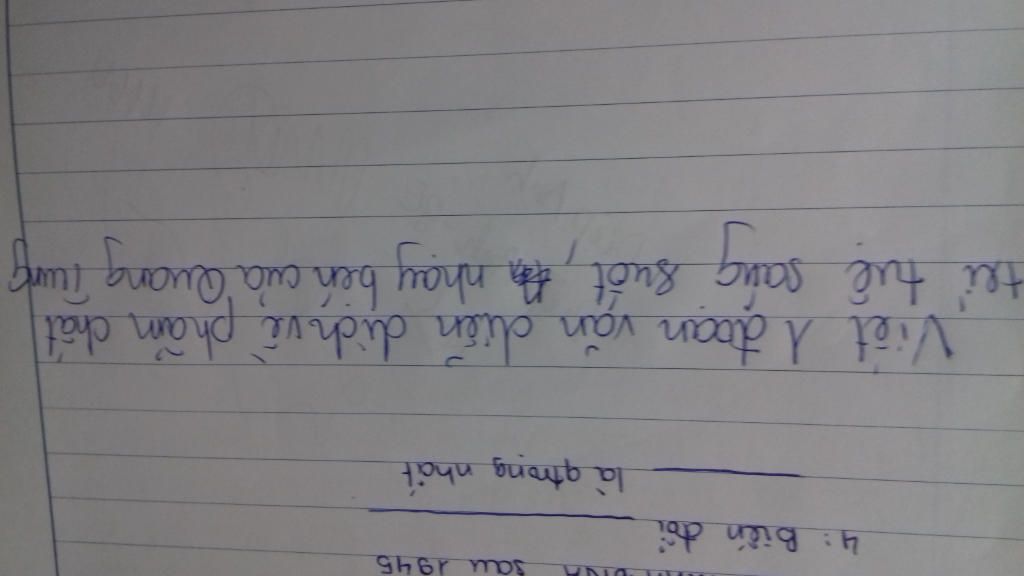 sau 1945
4: Biến đổi
là qtrọng nhất
Viết 1 đoạn văn diễn dịch về phẩm chất
trí tuệ sáng suốt, nhạy bén của Quang Trung